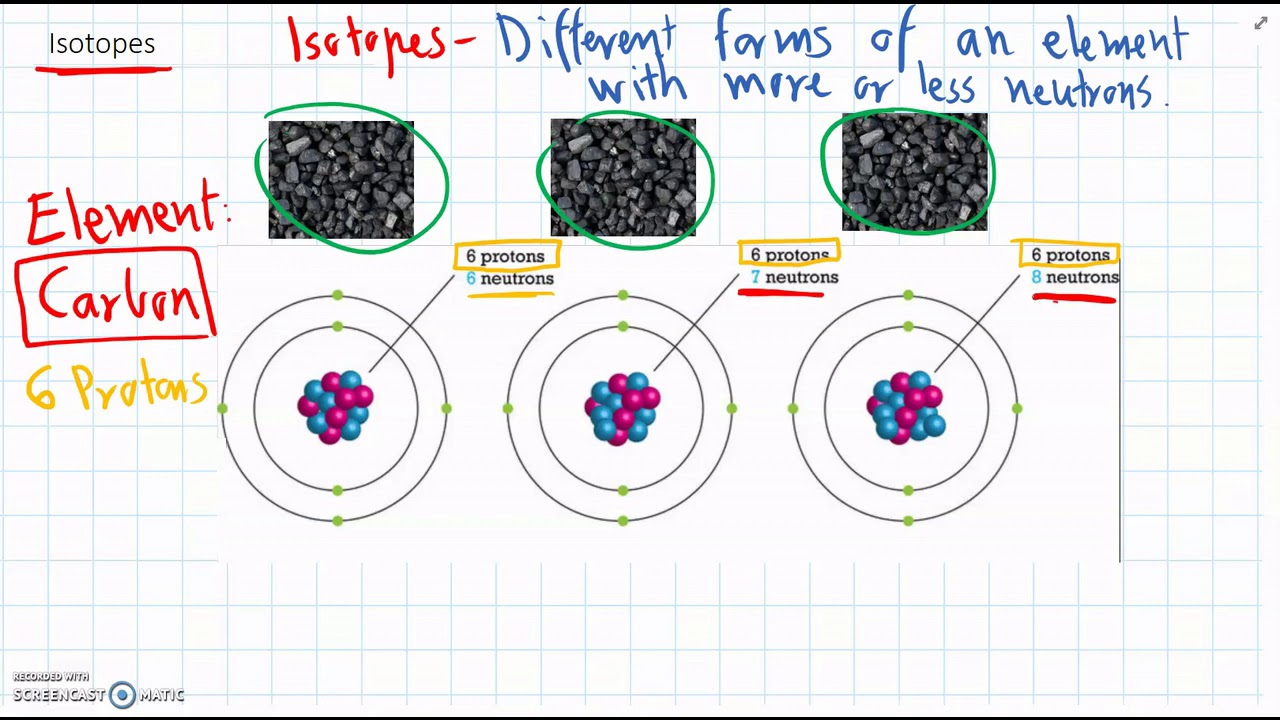 Isotopes
Isotopes - Different forms of an element
with more or less neutrons.
Element:
Carbon
6 Protons
6 protons
6 neutrons
6 protons
7 neutrons
6 protons
8 neutrons
RECORDED WITH
SCREENCAST MATIC